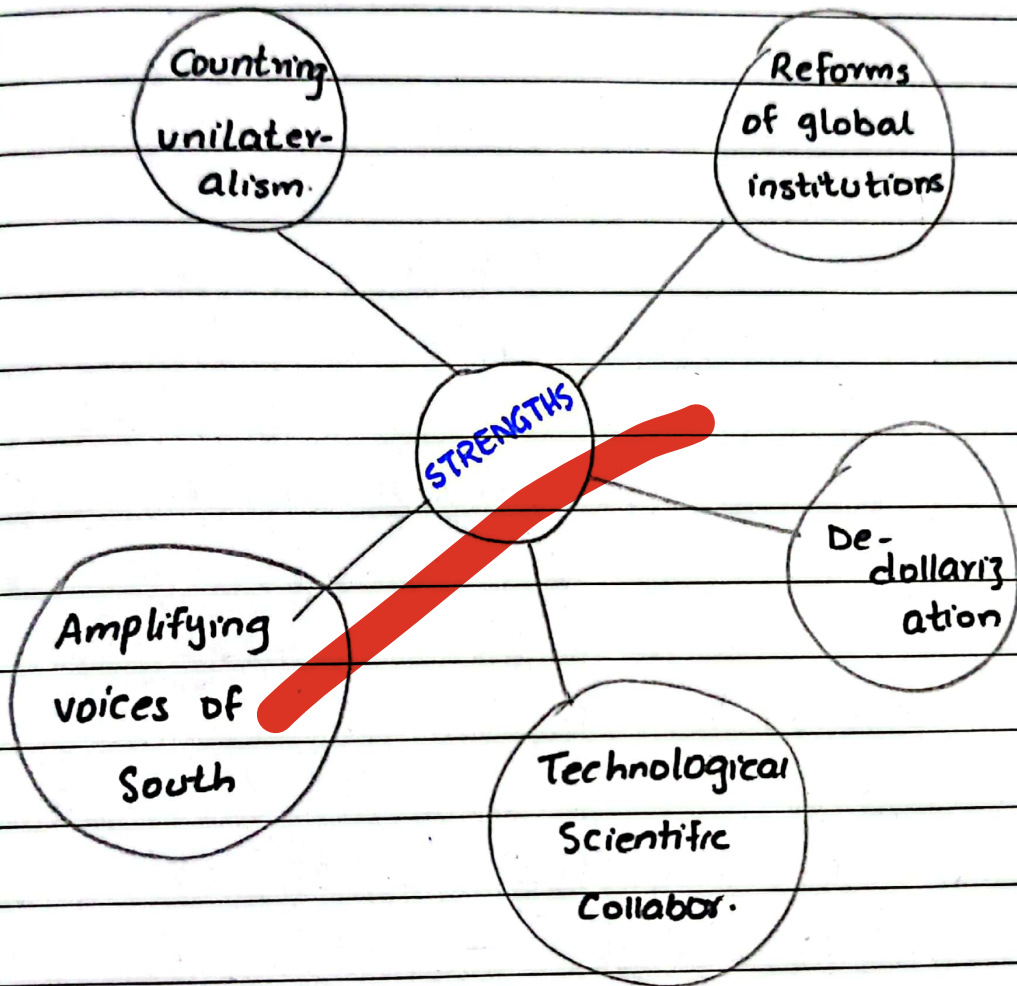 Countring
unilater-
alism.
Reforms
of global
institutions
STRENGTHS
De-
dollariz
ation
Amplifying
voices of
South
Technological
Scientific
Collabor.